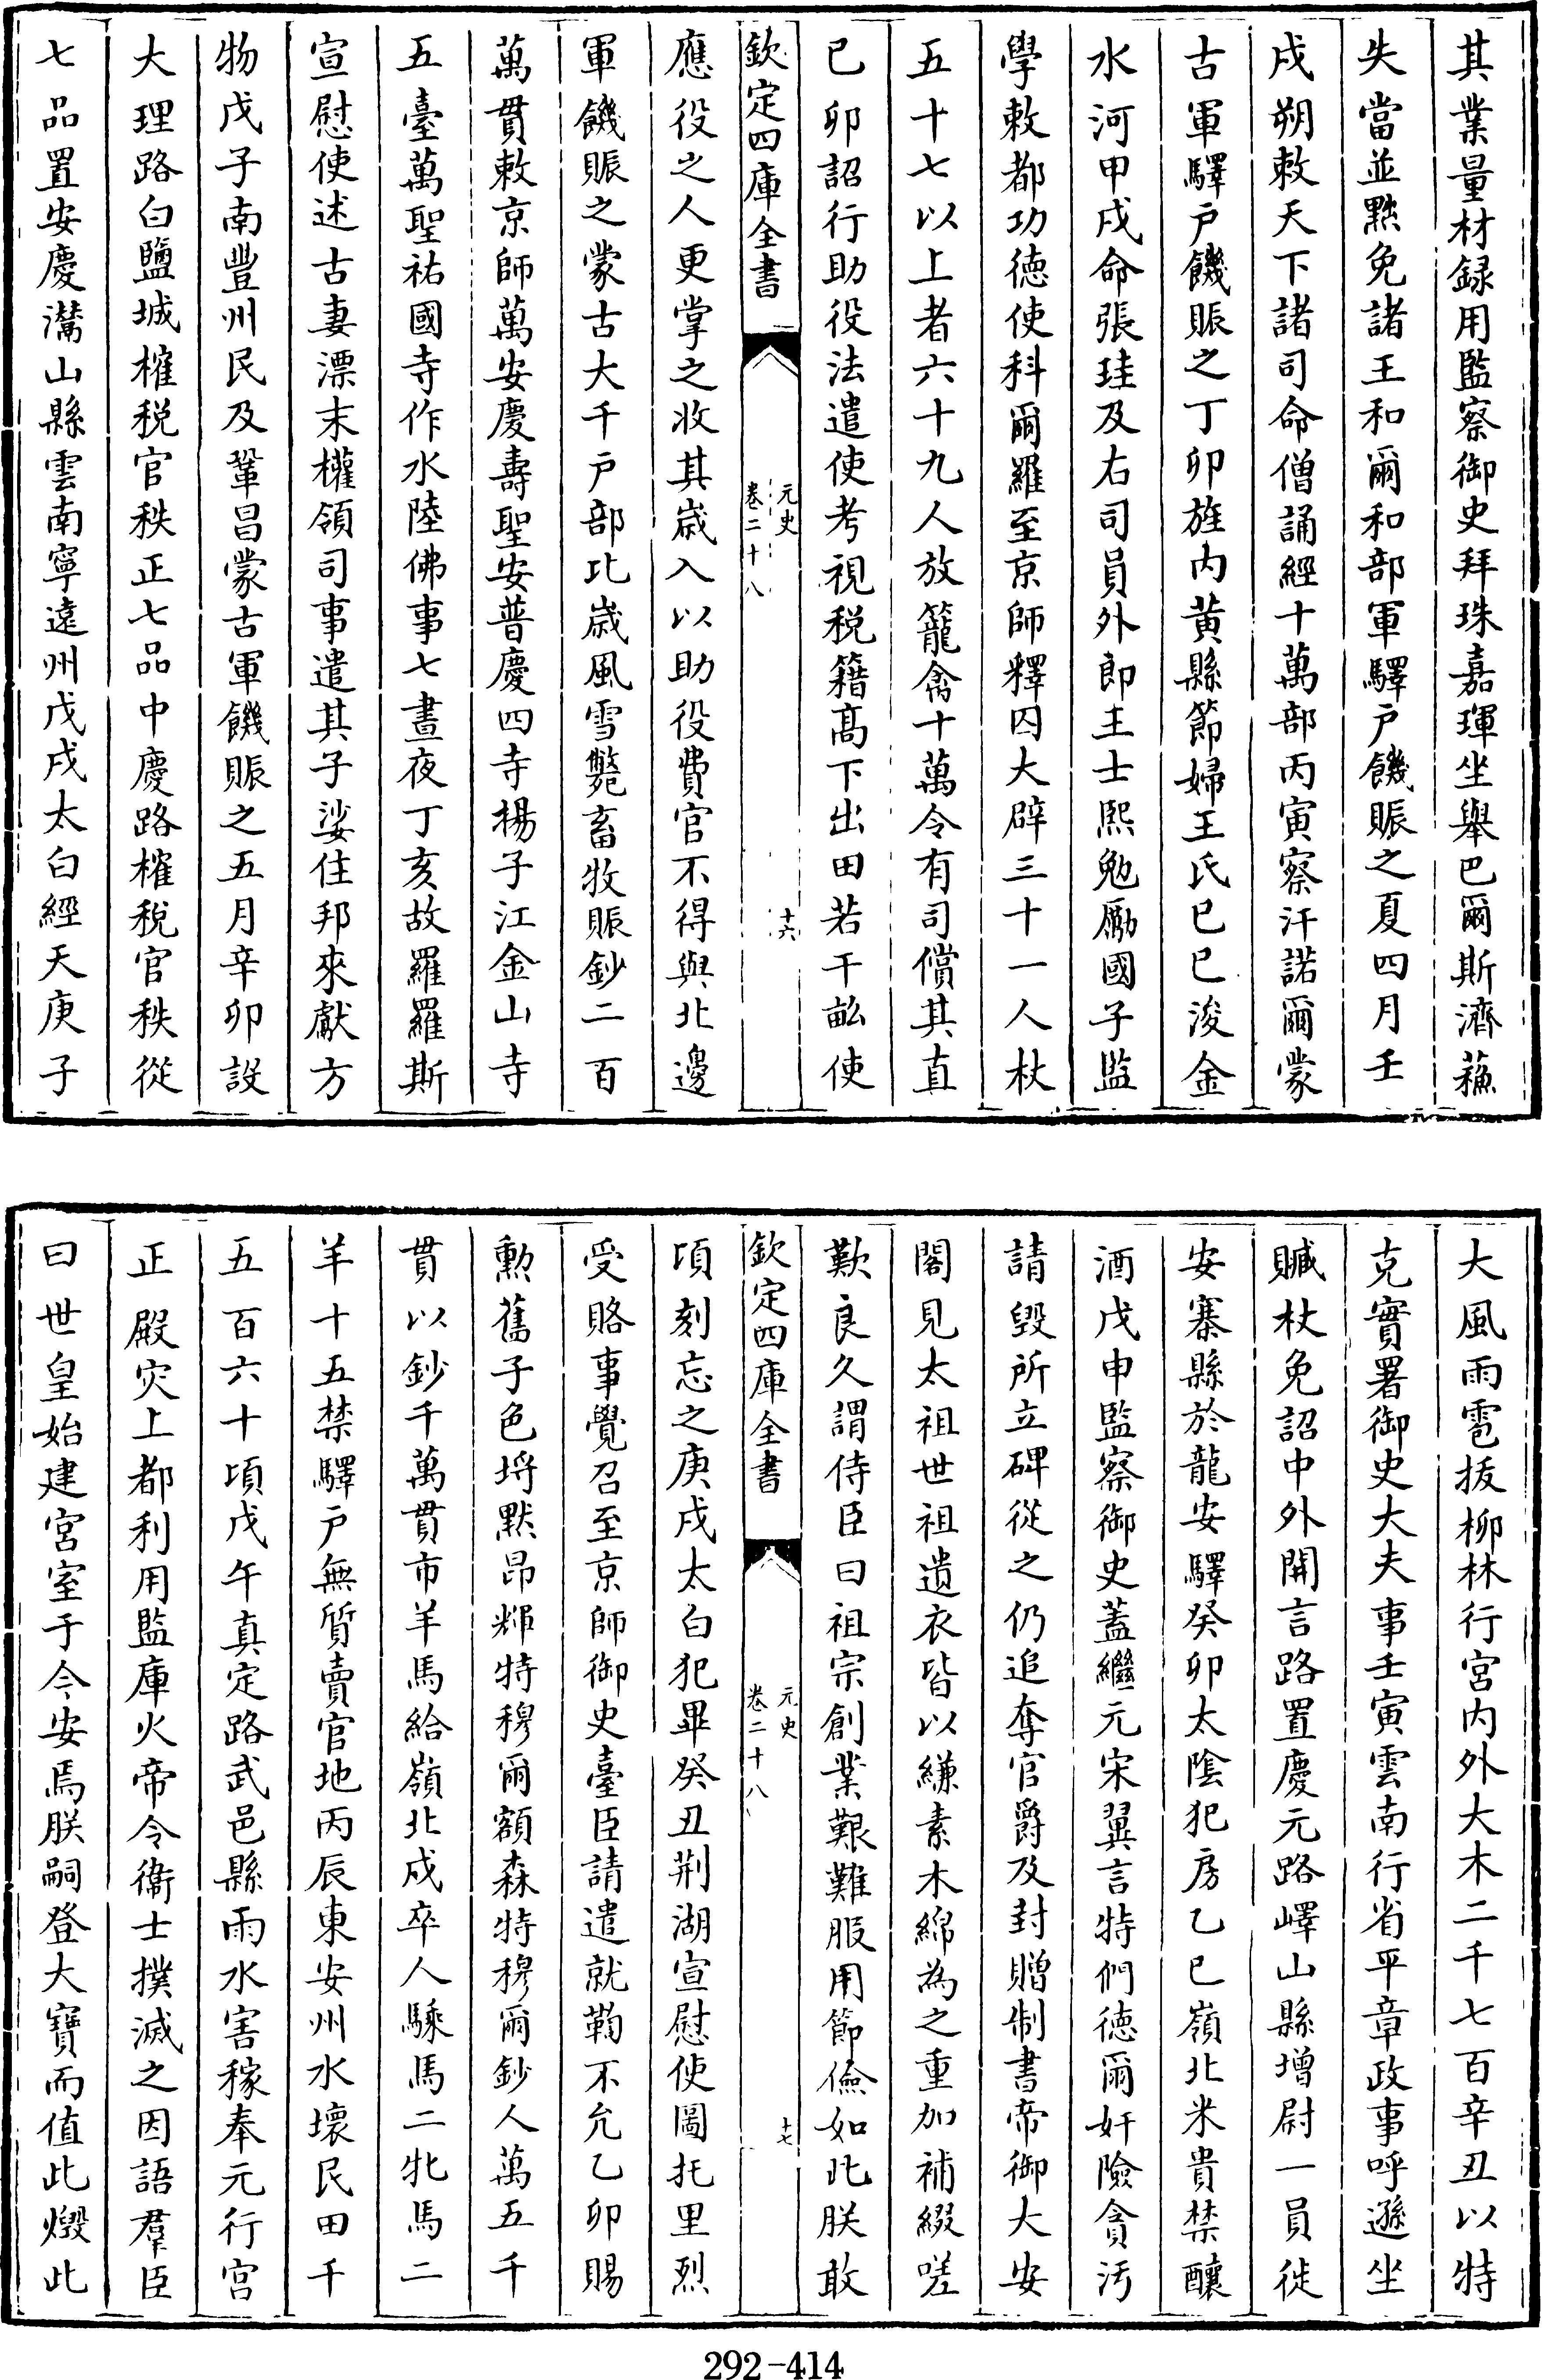 其業量材録用監察御史拜珠嘉琿坐舉巴爾斯濟蘓
失當並黜免諸王和爾和部軍驛户饑賑之夏四月壬
戌朔敕天下諸司命僧誦經十萬部丙寅察汗諾爾蒙
古軍驛户饑賑之丁卯旌内黄縣節婦王氏已巳浚金
水河甲戌命張珪及右司員外郎王士熙勉勵國子監
學敕都功徳使科爾羅至京師釋囚大辟三十一人杖
五十七以上者六十九人放籠禽十萬令有司償其直
已卯詔行助役法遣使考視税籍髙下出田若干畝使
欽定四庫全書
元史
卷二十八
十六
應役之人更掌之收其歳入以助役費官不得與北邊
軍饑賑之蒙古大千户部比歳風雪斃畜牧賑鈔二百
萬貫敕京師萬安慶壽聖安普慶四寺楊子江金山寺
五臺萬聖祐國寺作水陸佛事七晝夜丁亥故羅羅斯
宣慰使述古妻漂末權領司事遣其子娑住邦來獻方
物戊子南豐州民及鞏昌蒙古軍饑賑之五月辛卯設
大理路白鹽城榷税官秩正七品中慶路榷税官秩從
七品置安慶灊山縣雲南寧遠州戊戌太白經天庚子
大風雨雹拔柳林行宫内外大木二千七百辛丑以特
克實署御史大夫事壬寅雲南行省平章政事呼遜坐
贓杖免詔中外開言路置慶元路嶧山縣增尉一員徙
安寨縣於龍安驛癸卯太隂犯房乙巳嶺北米貴禁釀
酒戊申監察御史蓋繼元宋翼言特們徳爾奸險貪汚
請毀所立碑從之仍追奪官爵及封贈制書帝御大安
閣見太祖世祖遺衣皆以縑素木綿為之重加補綴嗟
歎良久謂侍臣曰祖宗創業艱難服用節儉如此朕敢
欽定四庫全書
元史
卷二十八
十七
頃刻忘之庚戌太白犯畢癸丑荆湖宣慰使圖托里烈
受賂事覺召至京師御史臺臣請遣就鞫不允乙卯賜
勲舊子色埒黙昂輝特穆爾額森特穆爾鈔人萬五千
貫以鈔千萬貫市羊馬給嶺北戍卒人騍馬二牝馬二
羊十五禁驛户無質賣官地丙辰東安州水壞民田千
五百六十頃戊午真定路武邑縣雨水害稼奉元行宫
正殿災上都利用監庫火帝令衞士撲滅之因語羣臣
曰世皇始建宫室于今安焉朕嗣登大寶而值此燬此
292-414